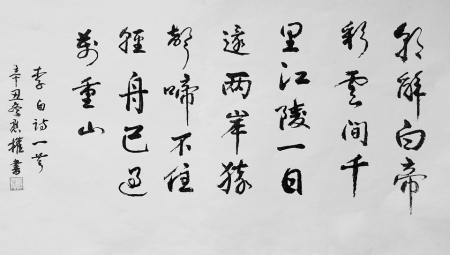 朝辭白帝
彩雲間千
里江陵一日
還两岸猿
聲啼不住
輕舟已過
萬重山
李白詩一首
辛丑冬權書